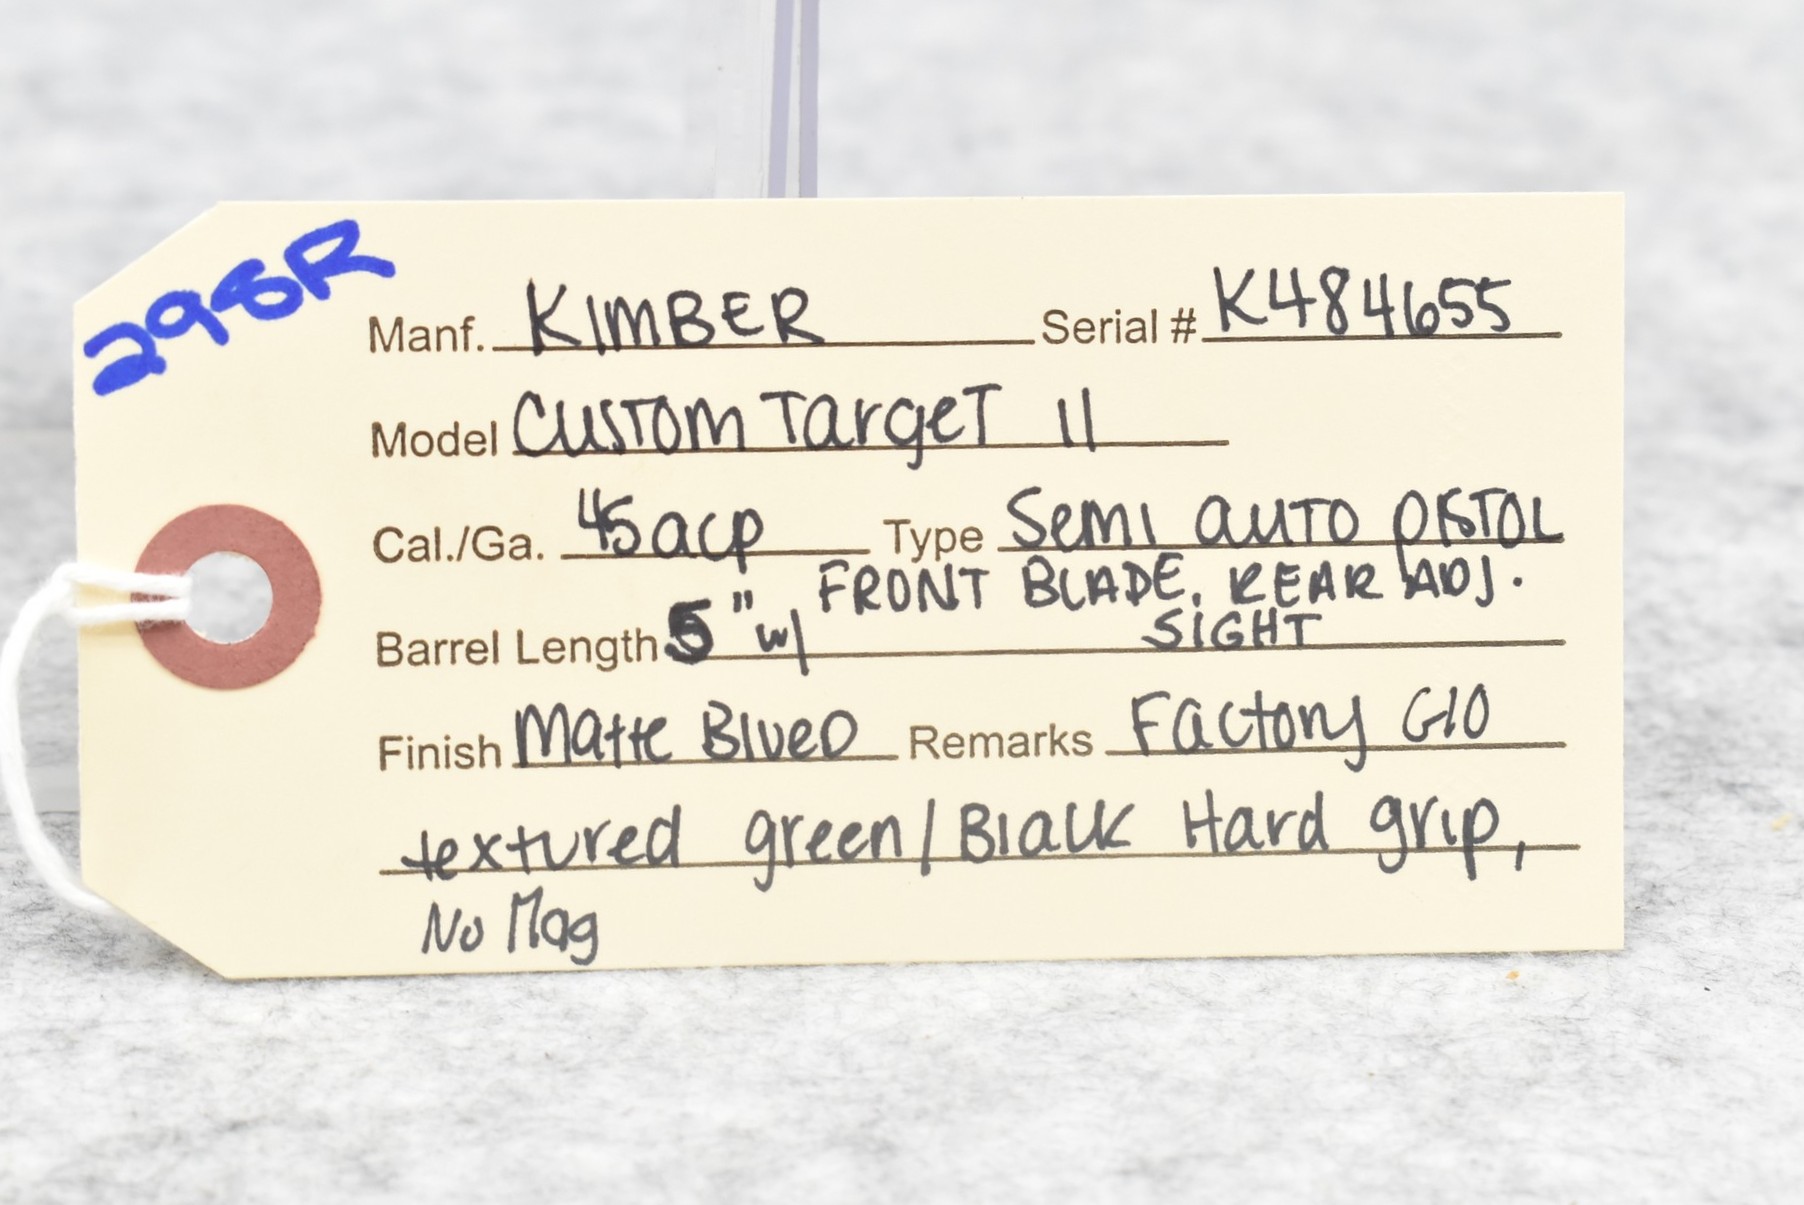 298R
Manf. KIMBER Serial # K484655
Model Custom Target II
Cal./Ga. 45acp Type Semi auto pistol
FRONT BLADE, REAR ADJ.
Barrel Length 5" w/ SIGHT
Finish Matte Blued Remarks Factory G10
textured green/Black Hard grip,
No Mag